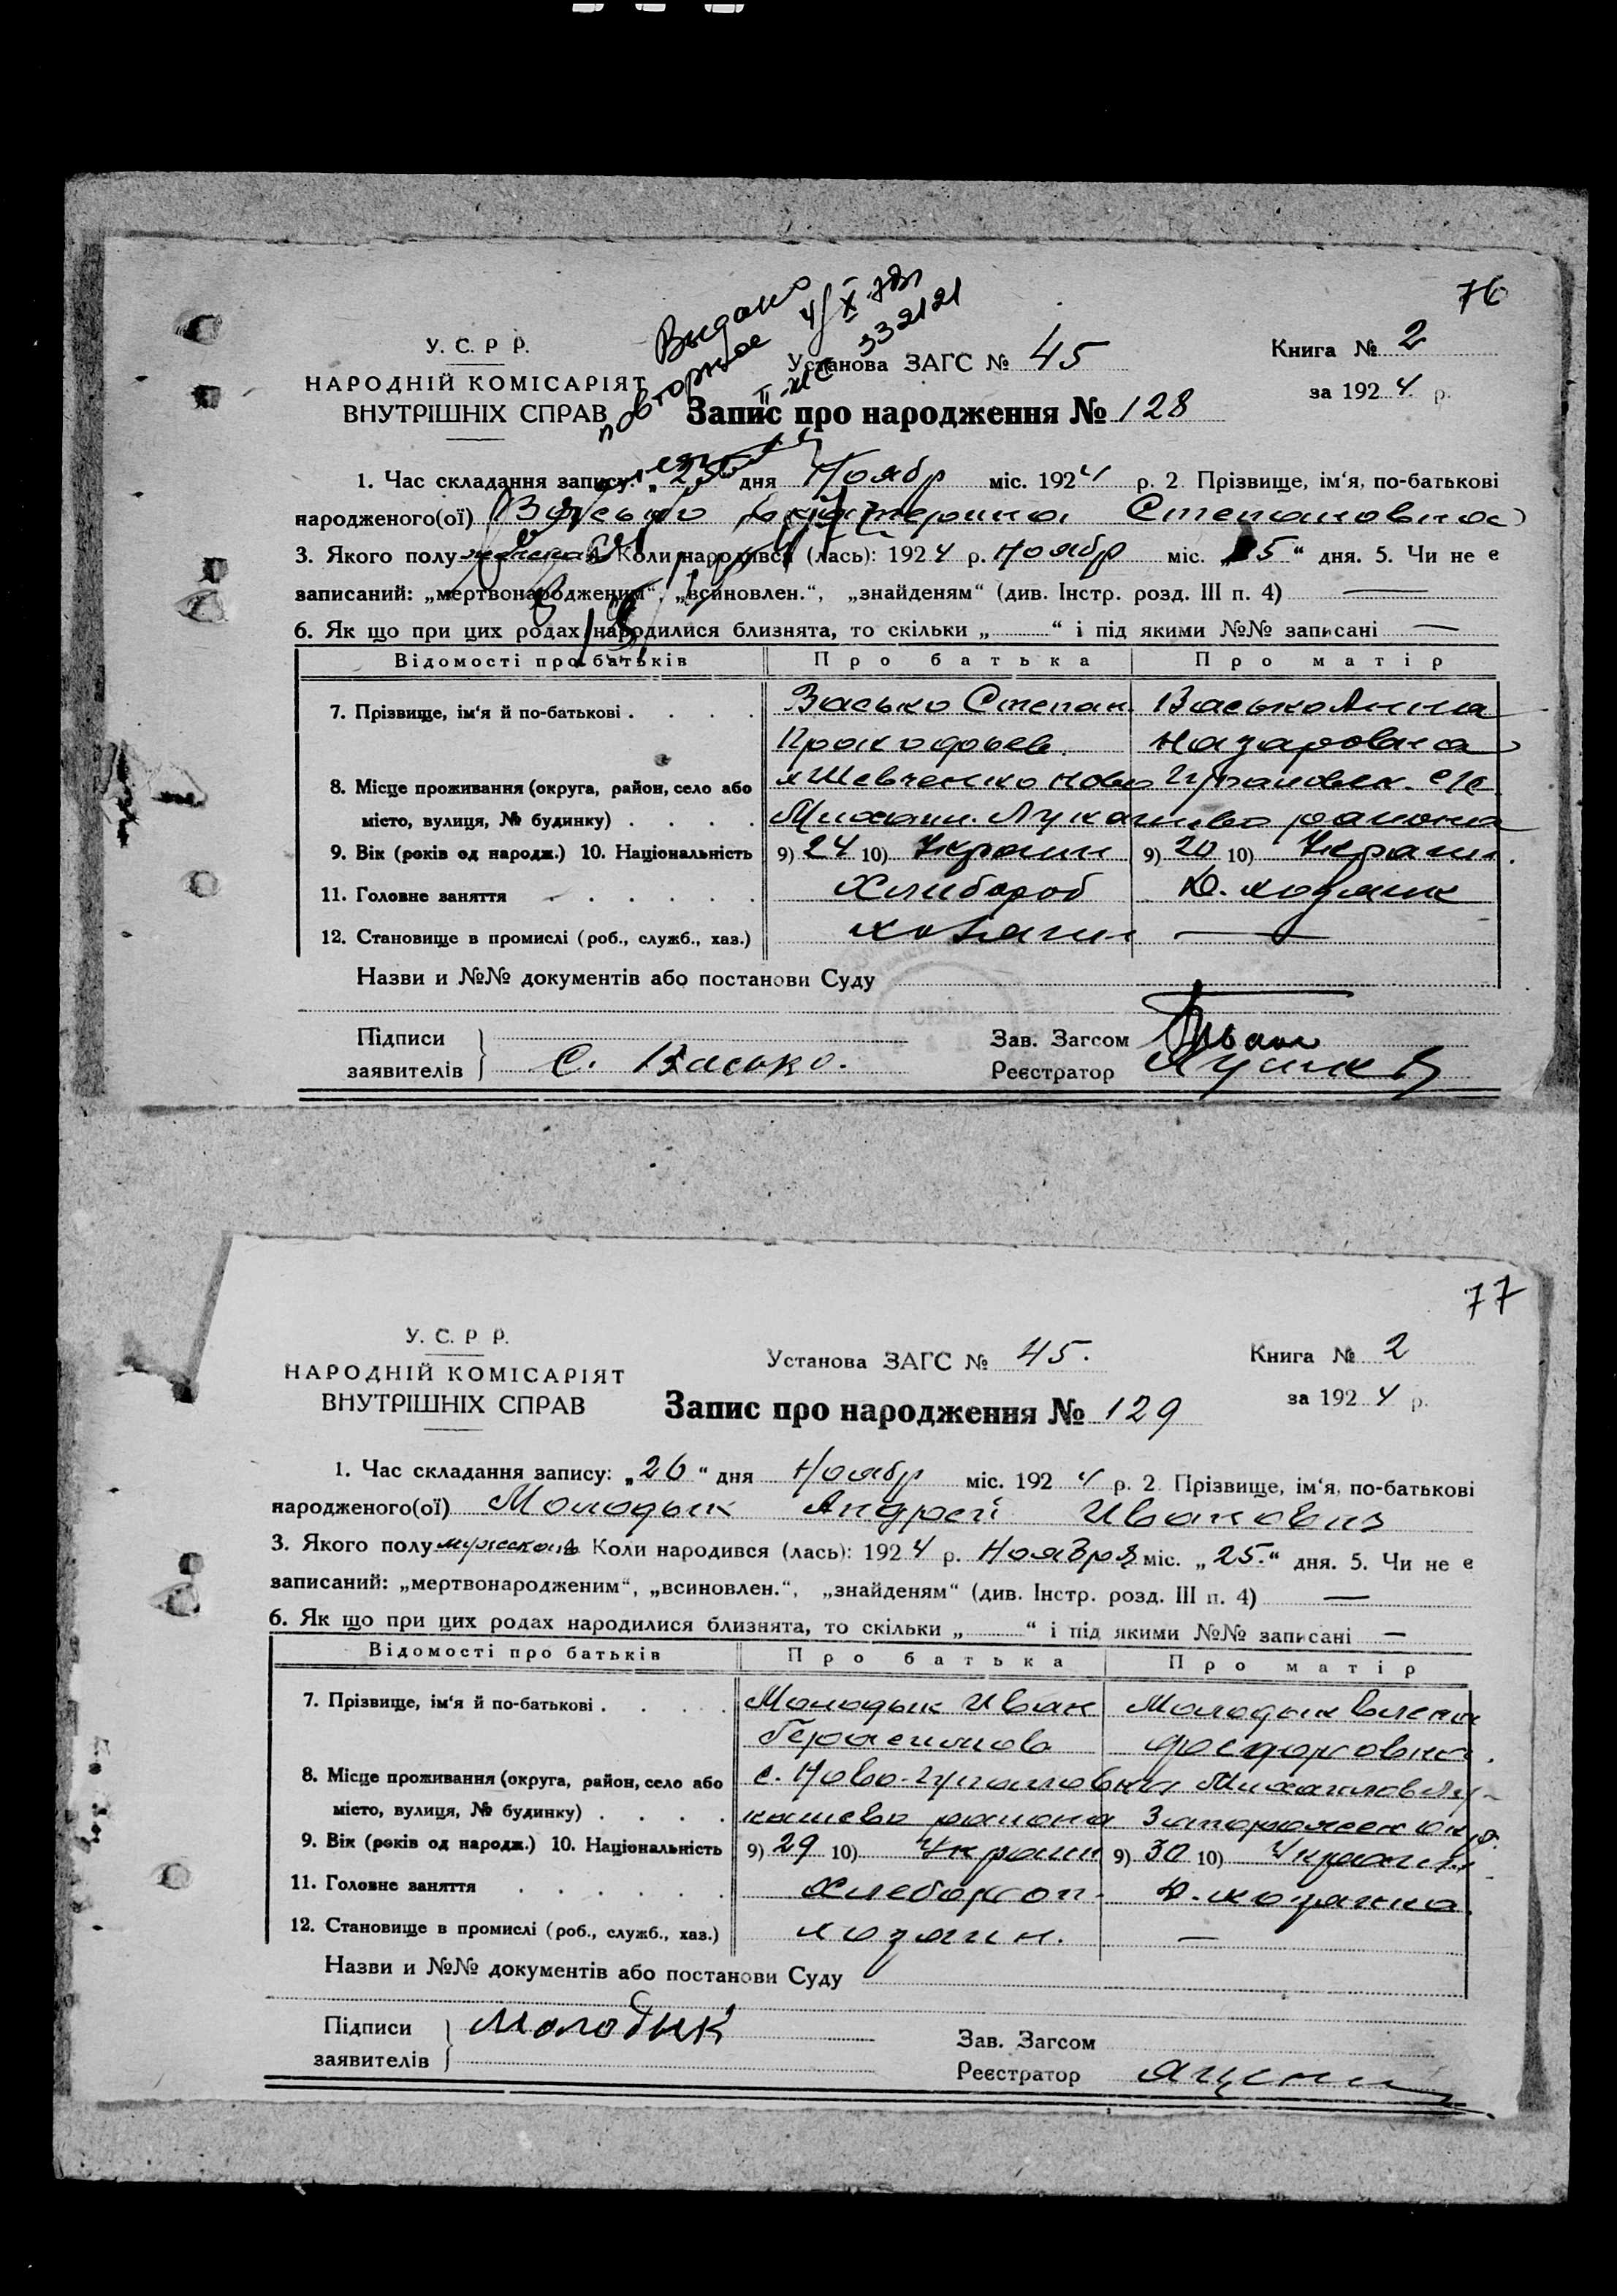 76
Выдано
повторное 4/X
II-ЖС 332121
У. С. Р. Р.
НАРОДНІЙ КОМІСАРІЯТ
ВНУТРІШНІХ СПРАВ
Установа ЗАГС № 45
Книга № 2
за 1924 р.
Запис про народження № 128
1. Час складання запису: „25“ дня Ноябр міс. 1924 р. 2. Прізвище, ім‘я, по-батькові
народженого(ої) Васько Екатерина Степановна
3. Якого полу женска 4. Коли народився (лась): 1924 р. Ноябр міс. „5“ дня. 5. Чи не є
записаний: „мертвонародженим“, „всиновлен.“, „знайденям“ (див. Інстр. розд. III п. 4) —
6. Як що при цих родах народилися близнята, то скільки „ “ і під якими №№ записані —
Відомості про батьків Про батька Про матір
7. Прізвище, ім‘я й по-батькові . . . . Васько Степан Васько Анна
Прокофьев. Назаровна
8. Місце проживання (округа, район, село або х Шевченко Ново
місто, вулиця, № будинку) . . . . Михаил. Лукашево района
9. Вік (років од народж.) 10. Національність 9) 24 10) Украин 9) 20 10) Украин.
11. Головне заняття . . . . . . Хлибороб Д. хозяик
12. Становище в промислі (роб., служб., хаз.) хозяин —
Назви и №№ документів або постанови Суду
Підписи
заявителів С. Васько.
Зав. Загсом
Реєстратор
77
У. С. Р. Р.
НАРОДНІЙ КОМІСАРІЯТ
ВНУТРІШНІХ СПРАВ
Установа ЗАГС № 45.
Книга № 2
за 1924 р.
Запис про народження № 129
1. Час складання запису: „26“ дня Ноябр міс. 1924 р. 2. Прізвище, ім‘я, по-батькові
народженого(ої) Молодык Андрей Иванович
3. Якого полу мужеского 4. Коли народився (лась): 1924 р. Ноября міс. „25.“ дня. 5. Чи не є
записаний: „мертвонародженим“, „всиновлен.“, „знайденям“ (див. Інстр. розд. III п. 4) —
6. Як що при цих родах народилися близнята, то скільки „ “ і під якими №№ записані —
Відомості про батьків Про батька Про матір
7. Прізвище, ім‘я й по-батькові . . . . Молодык Иван Молодык Елена
Герасимов Федоровна.
8. Місце проживання (округа, район, село або с. Ново- Михайлов Лу-
місто, вулиця, № будинку) . . . . кашево района Запорожск окр.
9. Вік (років од народж.) 10. Національність 9) 29 10) Украин 9) 30 10) Украин.
11. Головне заняття . . . . . . Хлебороб Д. хозяика
12. Становище в промислі (роб., служб., хаз.) хозяин. —
Назви и №№ документів або постанови Суду
Підписи
заявителів Молодик
Зав. Загсом
Реєстратор